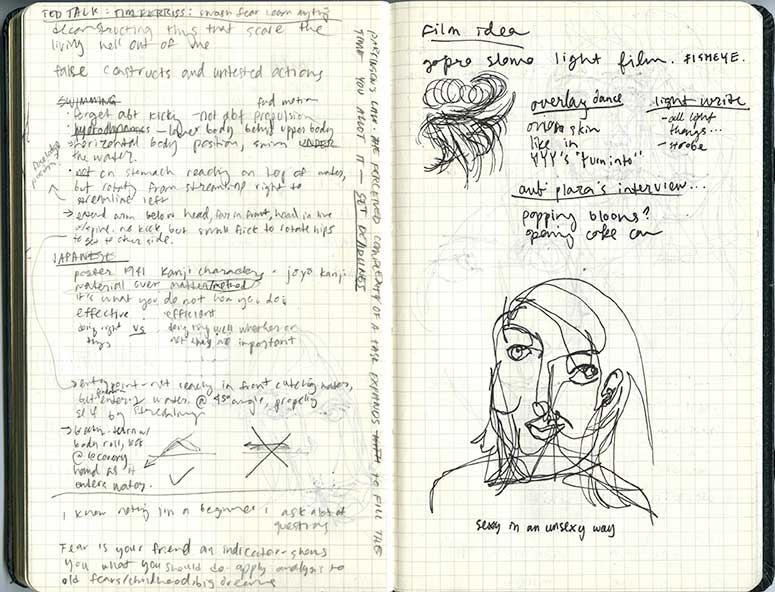 TED TALK: TIM FERRISS: smash fear learn anything
deconstructing things that scare the
living hell out of me
false constructs and untested actions
SWIMMING
forget abt kicking - not abt propulsion
hydrodynamics - lower body behind upper body
horizontal body position, swim UNDER
the water.
not on stomach reaching on top of water,
but rotating from streamline right to
streamline left
→ extend arm below head, far in front, head in line
w/spine. no kick, but small flick to rotate hips
to get to other side.
JAPANESE
poster 1981 Kanji characters - joyo kanji
material over method
it's what you do not how you do
effective vs efficient
doing right things
doing thing well whether or
not they are important
→ entry point - not reaching in front catching water,
but enters water @ 45° angle, propelling
self by streamlining
body roll,
@
hand as it
enters water.
I know nothing I'm a beginner I ask a lot of
questions
Fear is your friend an indicator - shows
you what you should do - apply analysis to
old fears/childhood big dreams
PARKINSON'S LAW. THE PERCEIVED COMPLEXITY OF A TASK EXPANDS TO FILL THE
TIME YOU ALLOT IT — SET DEADLINES
Film idea
gopro slomo light film. FISHEYE.
overlay dance
onto skin
like in
YYY'S "turn into"
light write
- all light
things...
- strobe
aub plaza's interview...
popping blooms?
opening coke can
sexy in an unsexy way